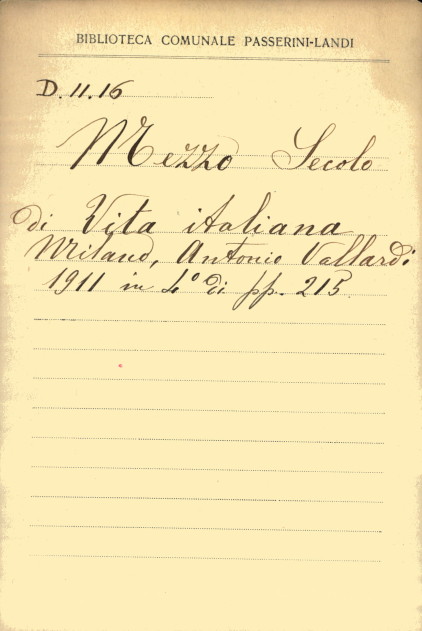 BIBLIOTECA COMUNALE PASSERINI-LANDI
D. 11.16
Mezzo Secolo
di Vita italiana
Milano, Antonio Vallardi
1911 in 4° di pp. 215